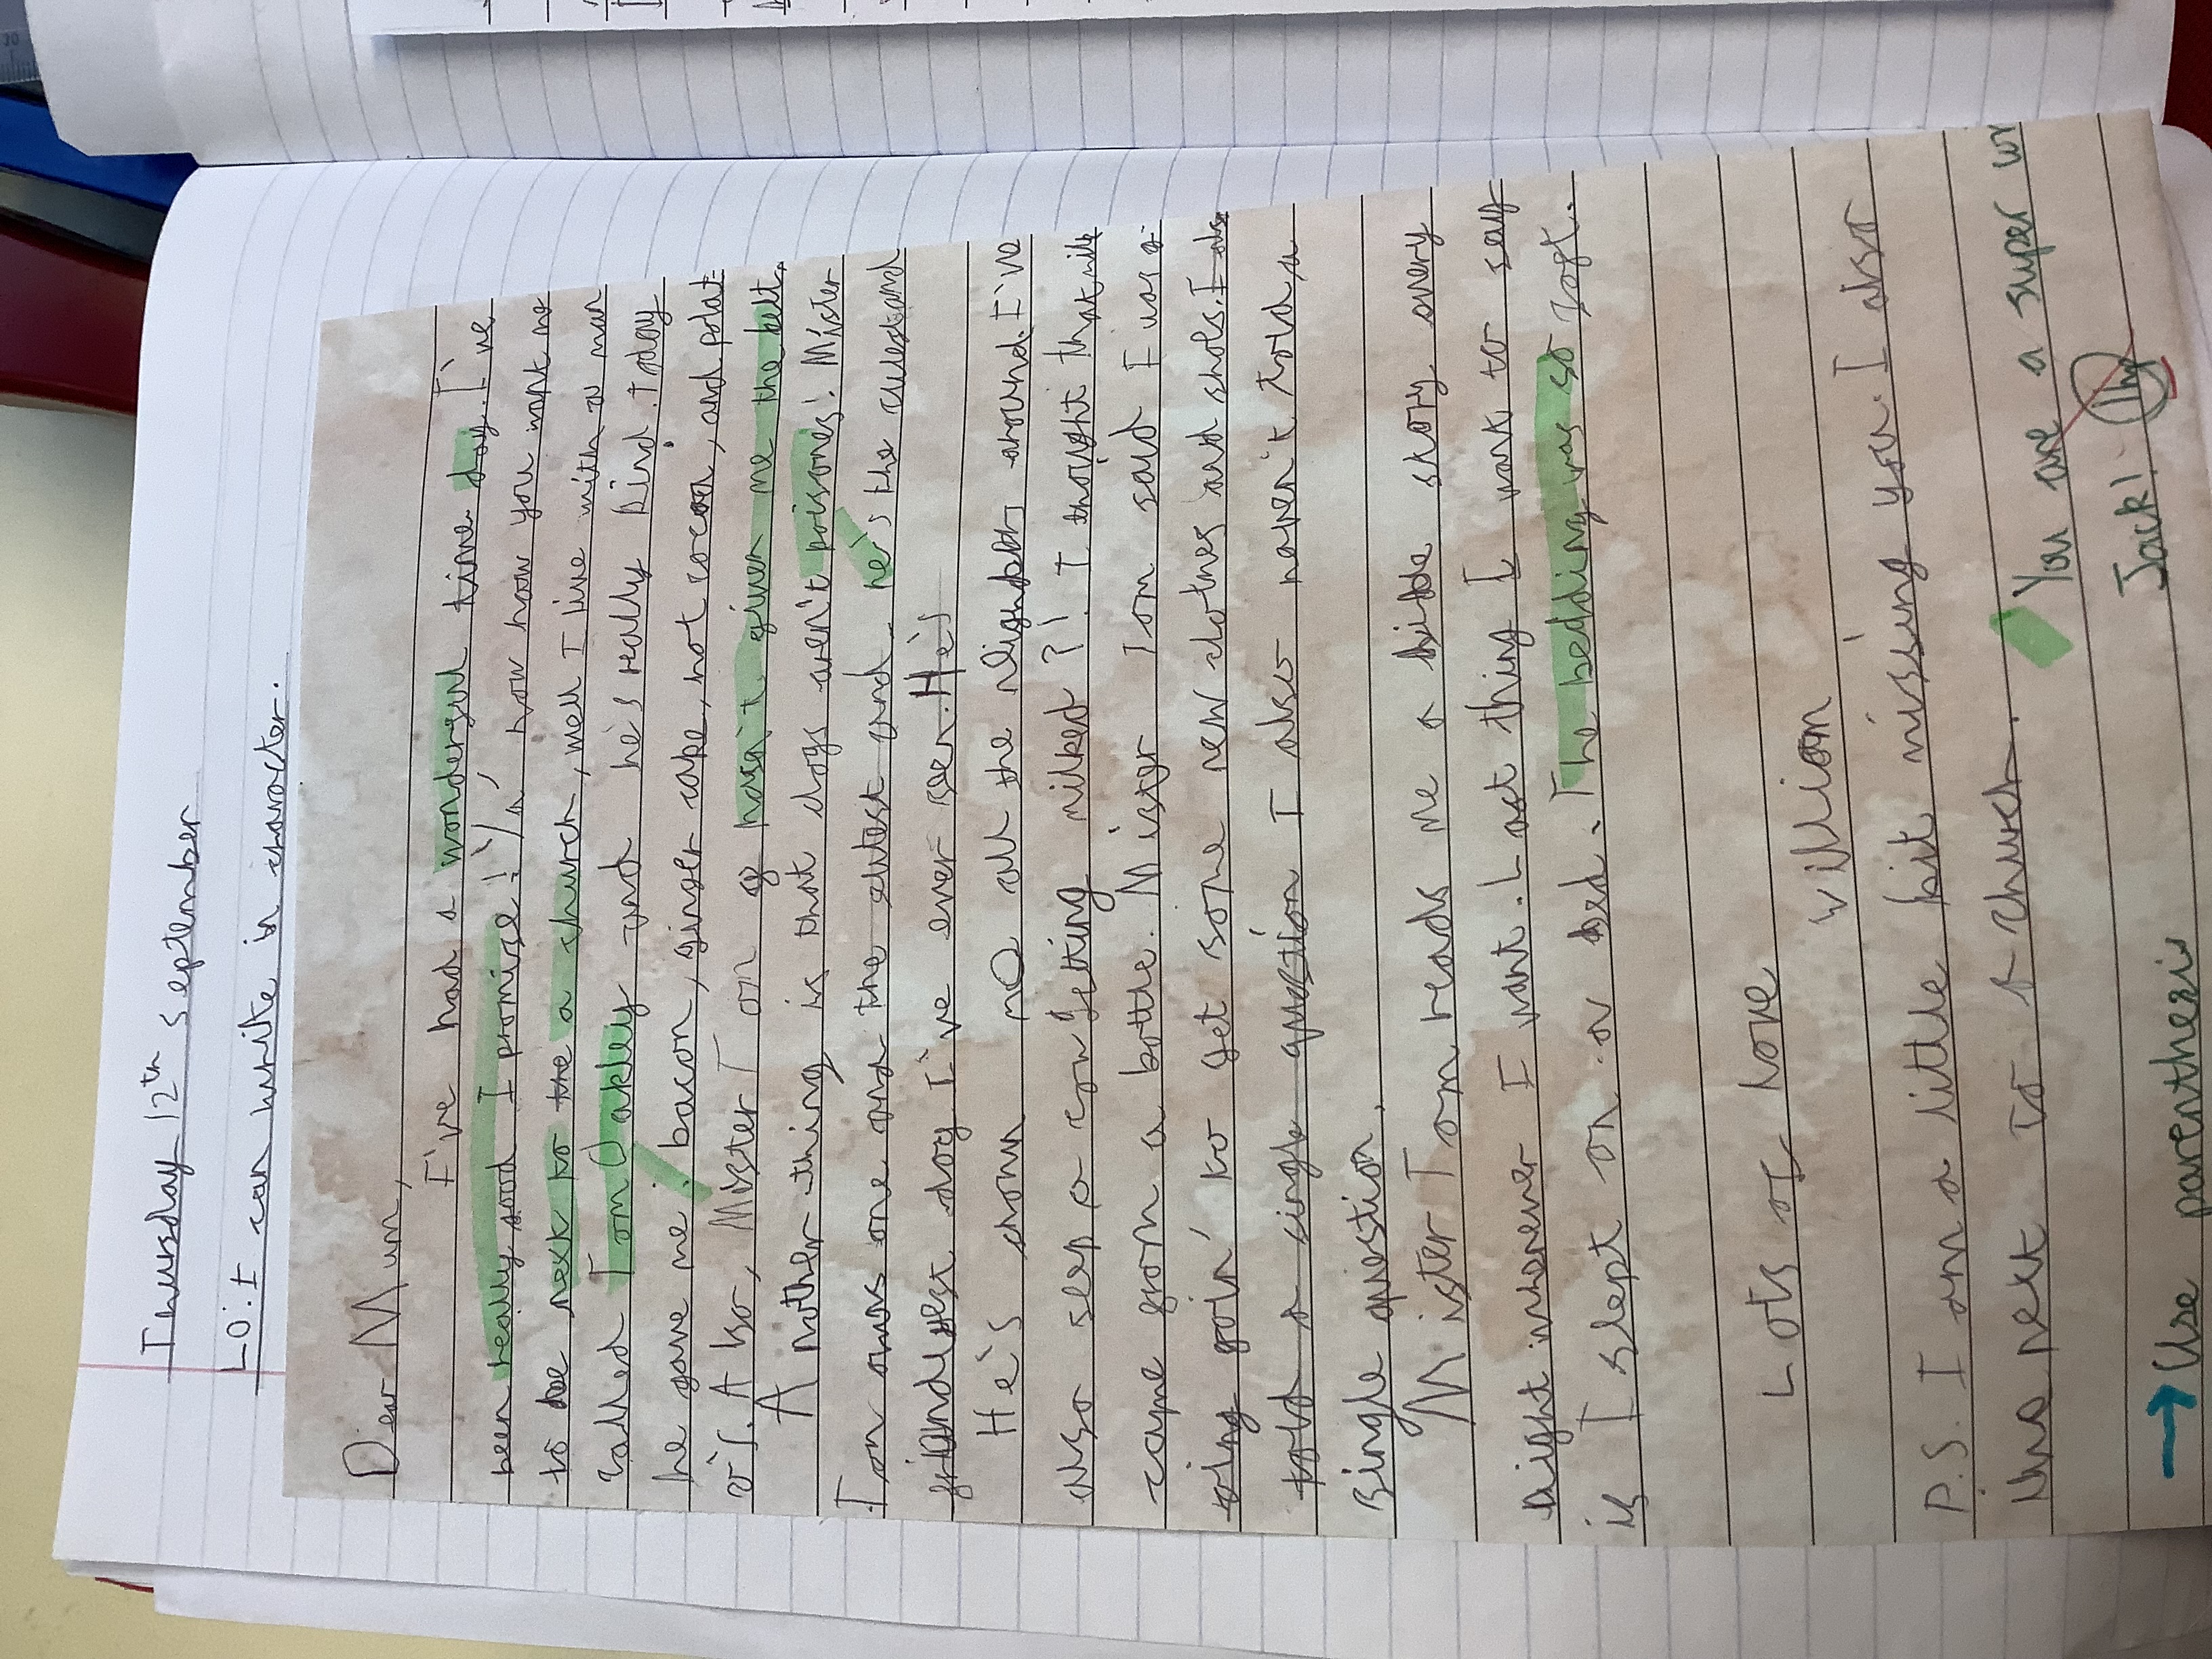 Thursday 12th September
LO: I can write in character.
Dear Mum,
I've had a wondergul time day. I've
been really good I promise! You now how you want me
to be next to the a church, well I live with a man
called Tom Oakley and he's really kind. Today
he gave me bacon, ginger cake, hot cocoa, and potat-
o's. Also, Mister Tom hasn't given me the belt.
Another thing is that dogs aren't poisones! Mister
Tom owns one and the cutest and he's the cutest and
friendlyest dog I've ever seen. He's
He's shown me all the neighbors around. I've
also seen a cow getting milked?! I thought that milk
came from a bottle. Mister Tom said I was g-
oing goin' to get some new clothes and shoes. I als
told a single question I also haven't told a
single question.
Mister Tom reads me a bible story every
night whenever I want. Last thing I want to say
is I slept on a bed. The bedding was so soft.
Lots of love
William
P.S. I am a little bit missing you. I also
live next to a church.
You are a super
Jack!
→ Use parenthesis